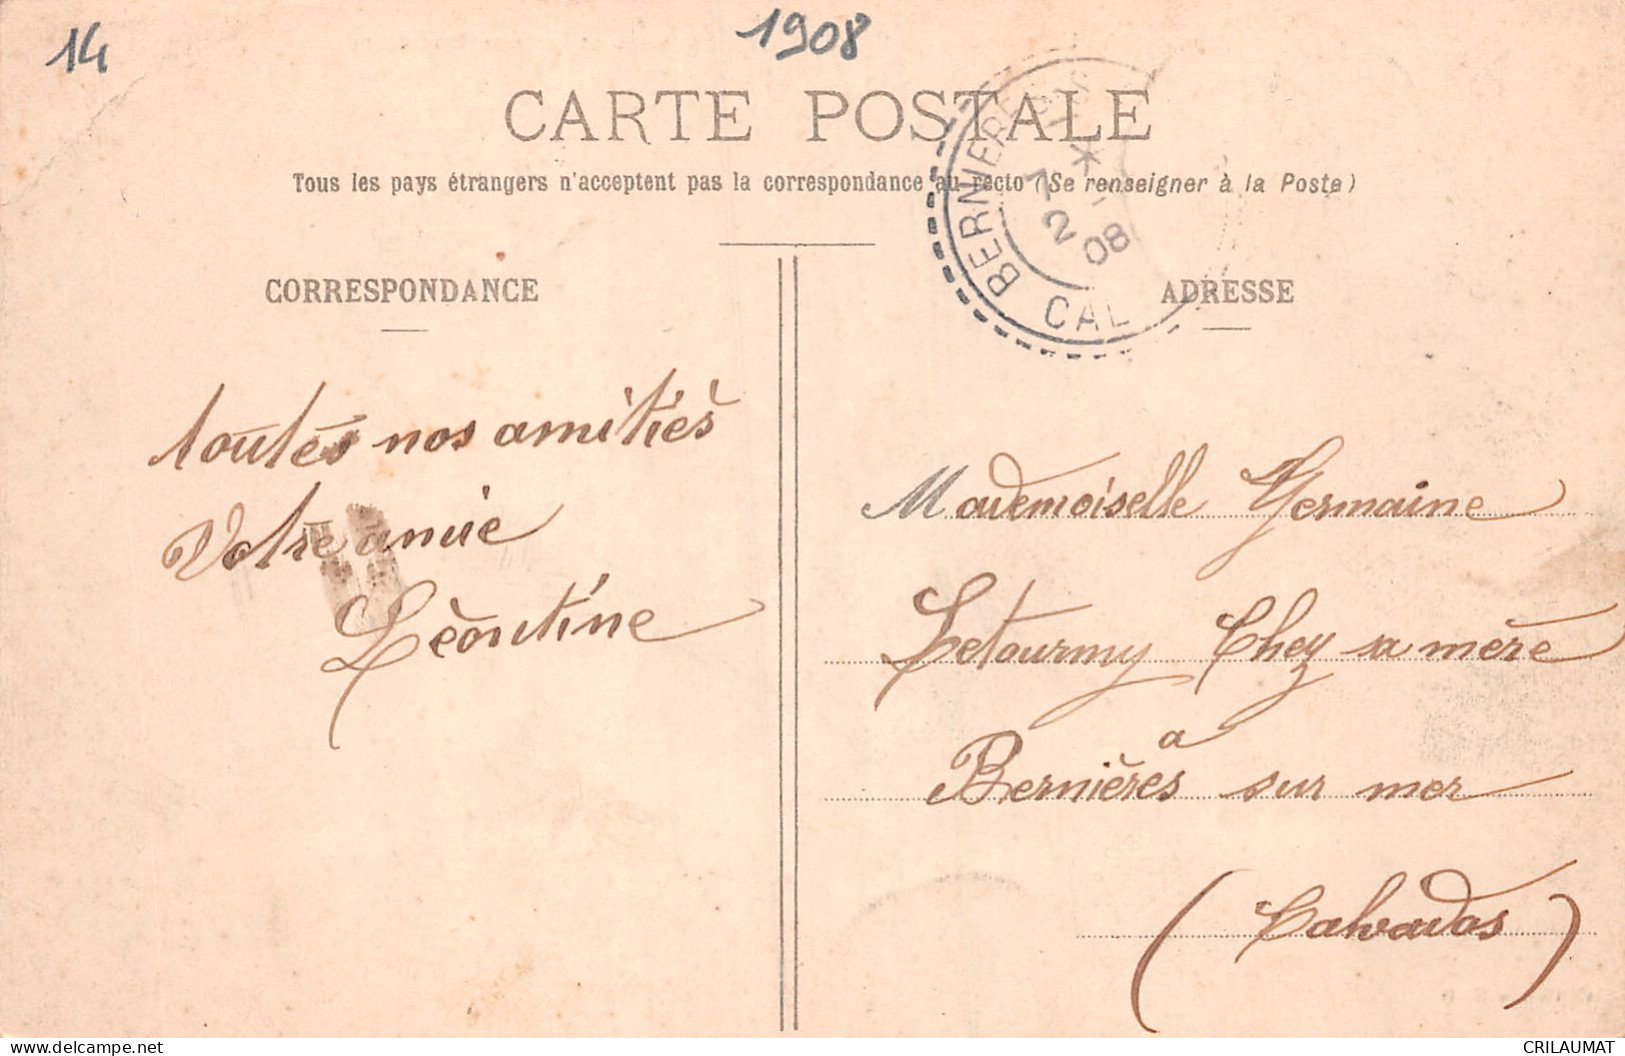 14
1908
CARTE POSTALE
Tous les pays étrangers n'acceptent pas la correspondance au recto (Se renseigner à la Poste)
BERNIERES
7 -
2 08
CAL
CORRESPONDANCE
ADRESSE
toutés nos amitiés
Votre amie
Léontine
Mademoiselle Germaine
Letourmy Chez sa mère
a
Bernières sur mer
(Calvados)
CRILAUMAT